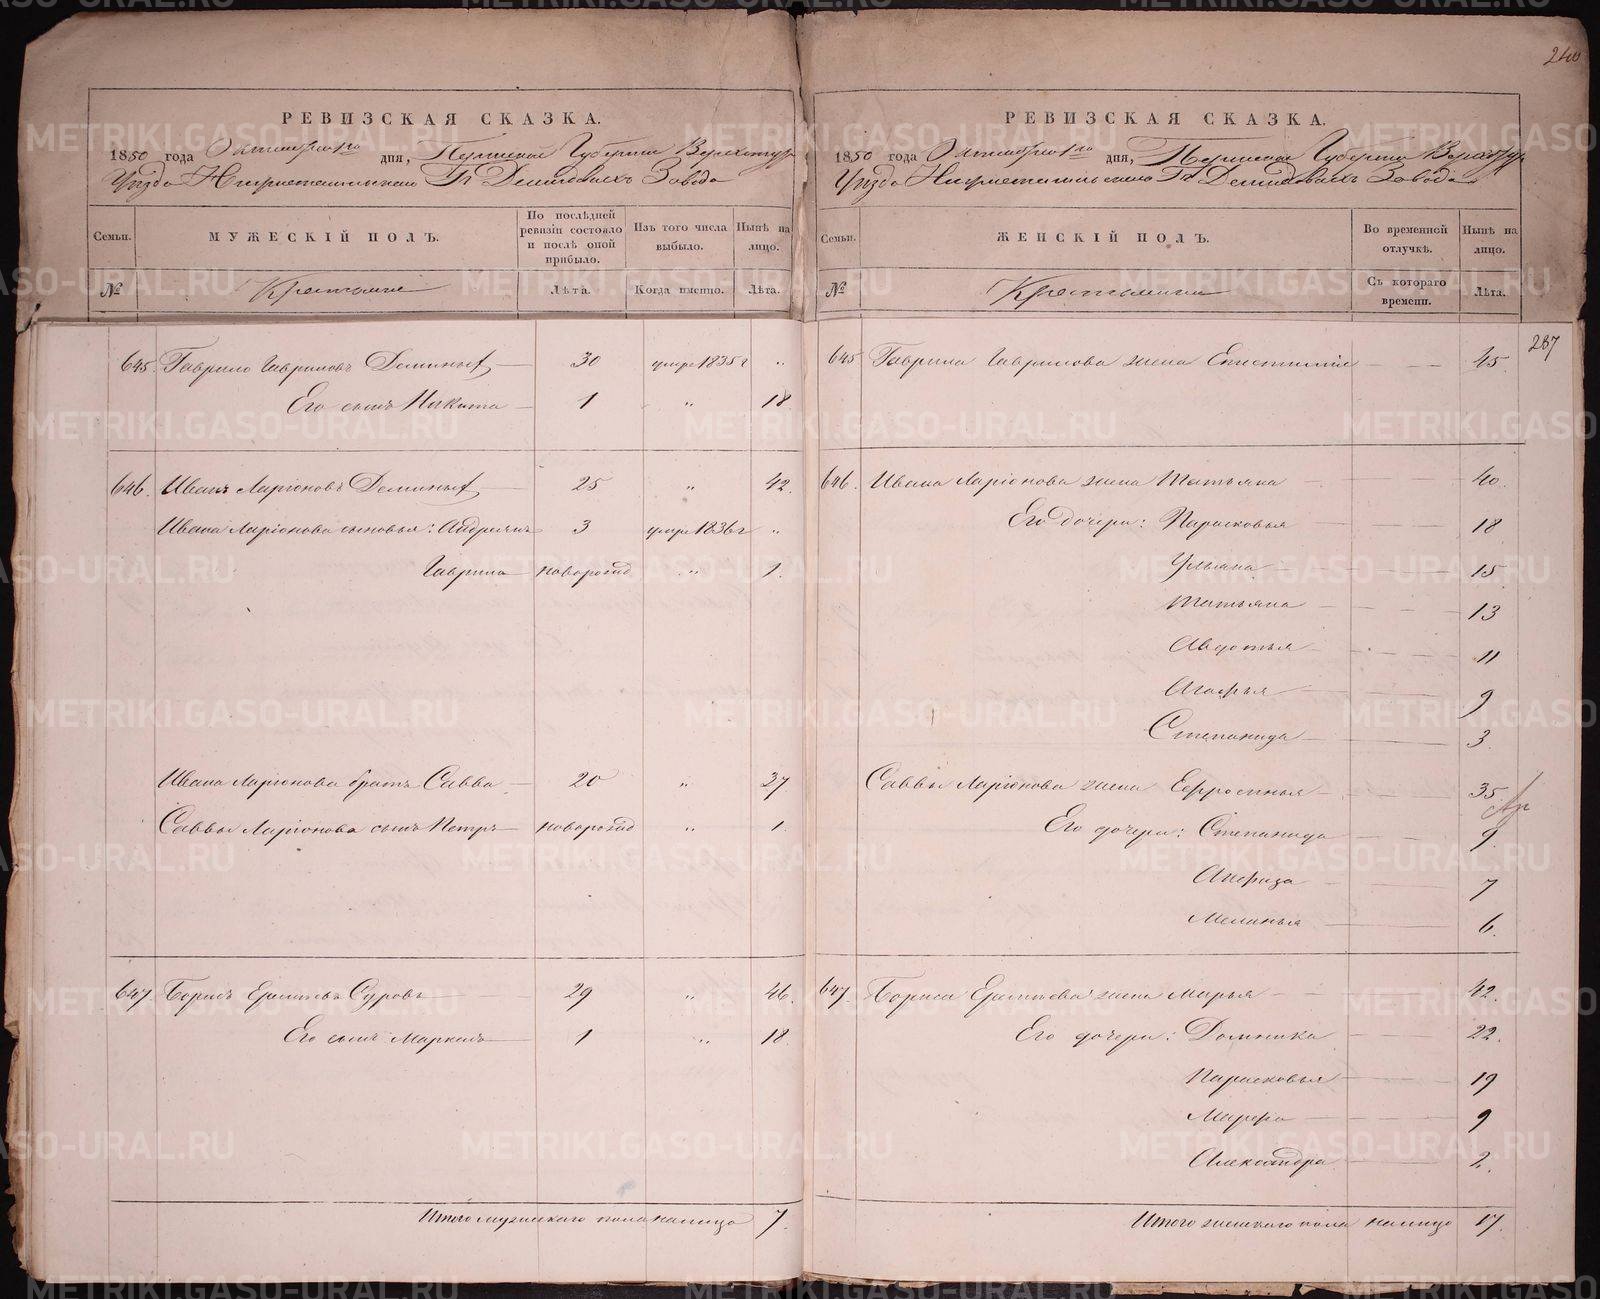 240
РЕВИЗСКАЯ СКАЗКА.
1850 года Октября 1го дня, Пермской Губернии Верхотур
Уѣзда Нижнетагильскаго Гг Демидовыхъ Завода
Семьи. МУЖЕСКІЙ ПОЛЪ. По послѣдней ревизіи состояло и послѣ оной прибыло. Изъ того числа выбыло. Нынѣ на лицо.
№ Крестьяне Лѣта. Когда именно. Лѣта.
645. Гаврило Гавриловъ Деминых 30 умре 1835 г "
Его сынъ Никита 1 " 18
646. Иванъ Ларіоновъ Деминых 25 " 42.
Ивана Ларіонова сыновья: Андреянъ 3 умре 1836 г "
Гаврила новорожд " 1.
Ивана Ларіонова братъ Савва 20 " 37
Саввы Ларіонова сынъ Петръ новорожд " 1.
647. Борисъ Ермиевъ Суровъ 29 " 46.
Его сынъ Маркелъ 1 " 18.
Итого мужескаго пола налицо 7.
РЕВИЗСКАЯ СКАЗКА.
1850 года Октября 1го дня, Пермской Губернии Верхотур
Уѣзда Нижнетагильскаго Гг Демидовыхъ Завода
Семьи. ЖЕНСКІЙ ПОЛЪ. Во временной отлучкѣ. Нынѣ на лицо.
№ Крестьянки Съ котораго времени. Лѣта.
287
645 Гаврила Гаврилова жена Епистимія 45.
646. Ивана Ларіонова жена Татьяна 40.
Его дочери: Парасковья 18
Ульяна 15
Татьяна 13
Авдотья 11
Агафья 9
Степанида 3.
Саввы Ларіонова жена Ефросинья 35.
Его дочери: Степанида 9.
Анфиза 7
Меланья 6.
647. Бориса Ермиева жена Марья 42.
Его дочери: Домника 22.
Парасковья 19
Марфа 9
Александра 2.
Итого женскаго пола налицо 17.
METRIKI.GASO-URAL.RU